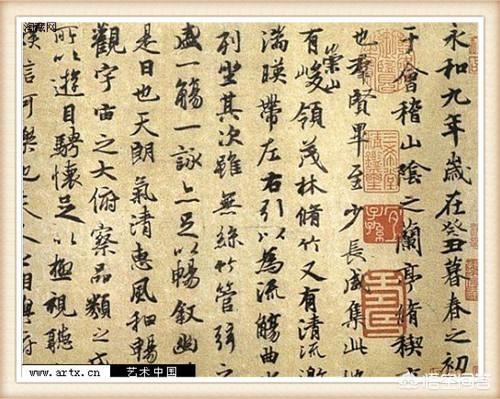 永和九年歲在癸丑暮春之初
于會稽山陰之蘭亭脩稧
也羣賢畢至少長咸集此
有崇山峻領茂林脩竹又有清流激
湍暎帶左右引以為流觴曲
列坐其次雖無絲竹管弦之
盛一觴一詠亦足以暢叙幽
是日也天朗氣清惠風和暢
觀宇宙之大俯察品類之
所以遊目騁懷足以極視聽
信可樂也夫人之相與俯
三希堂精鑑璽
宜子孫
www.artx.cn
艺术中国
悟空问答